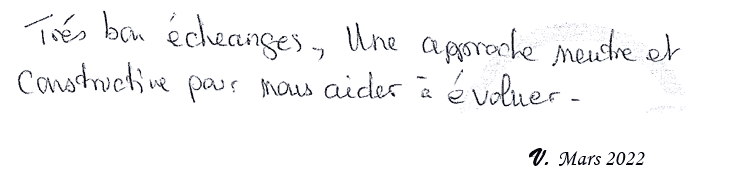 Trés bon écheanges, Une approche neutre et
Constructive pour nous aider à évoluer -
V. Mars 2022